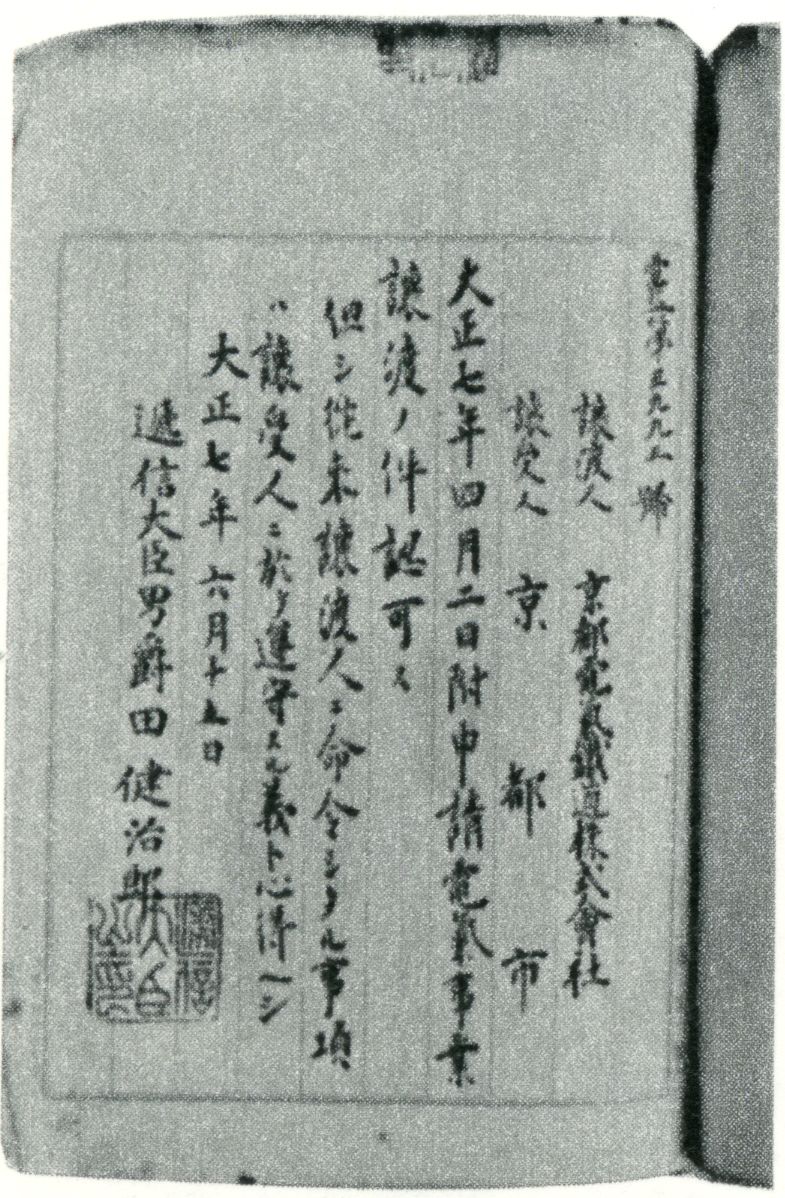 電業第五九九二號
譲渡人 京都電氣鐵道株式會社
譲受人 京都市
大正七年四月二日附申請電氣事業
譲渡ノ件認可ス
但シ從来譲渡人ニ命令シタル事項
ハ譲受人ニ於テ遵守スル義ト心得ヘシ
大正七年六月十五日
逓信大臣男爵田健治郎